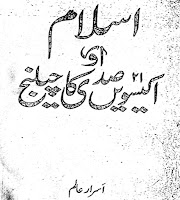 اسلام
اور
اکیسویں صدی کا چیلنج
اسرار عالم